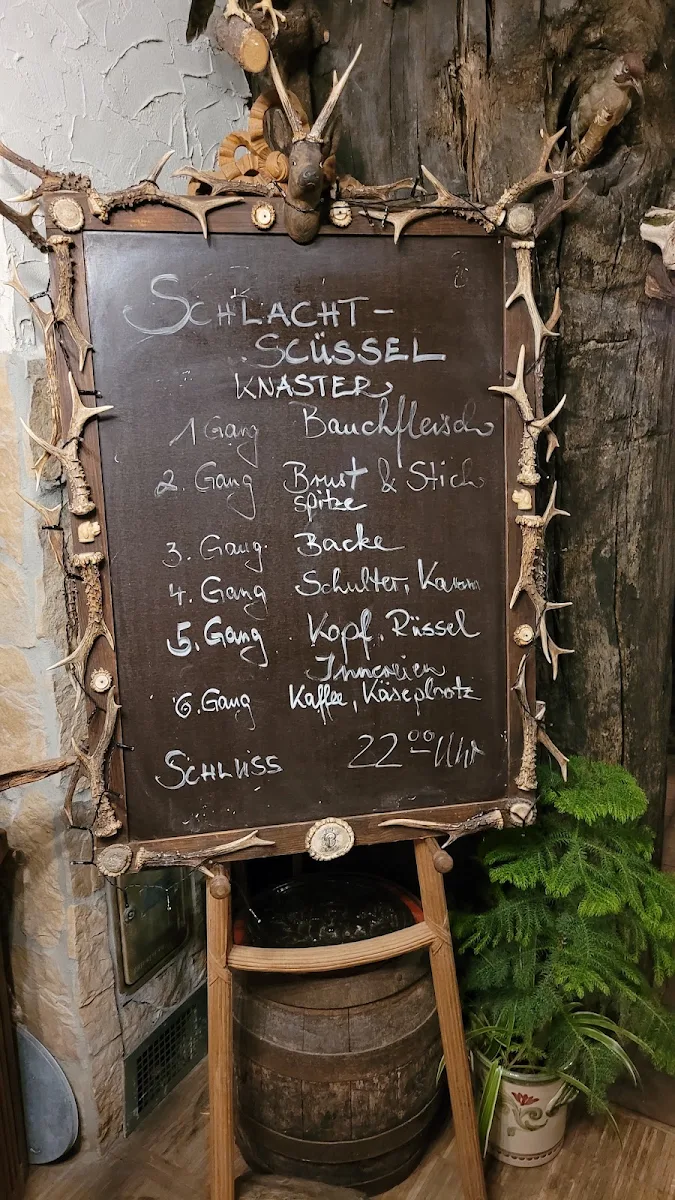 SCHLACHT-
SCÜSSEL
KNASTER
1 Gang Bauchfleisch
2. Gang Brust & Stich
spitze
3. Gang. Backe
4. Gang Schulter, Kamm
5. Gang Kopf, Rüssel
Innereien
6. Gang Kaffee, Käseplootz
SCHLUSS 22 00 Uhr